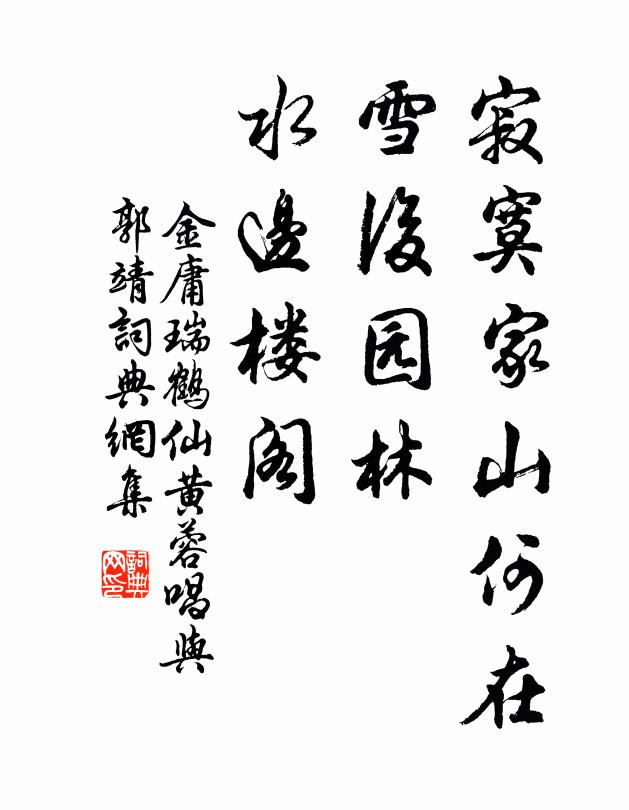 寂寞家山何在
雪後园林
水邊楼阁
金庸瑞鹤仙黄蓉唱與
郭靖詞典網集
詞典
网印